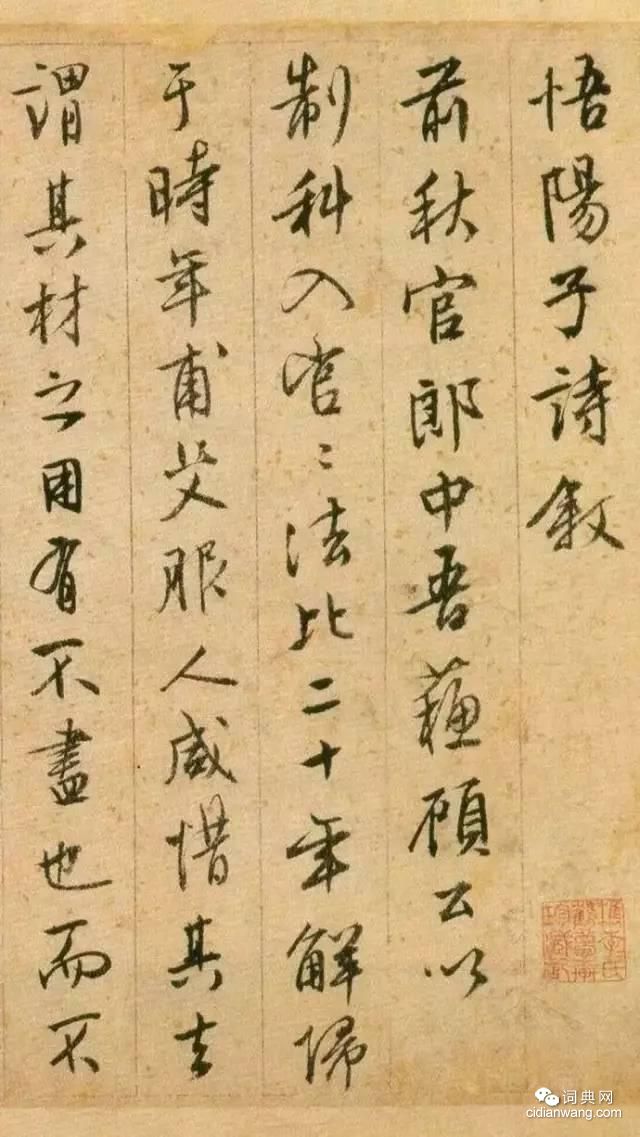 悟陽子詩敘
前秋官郎中吾蘓顧公以
制科入官〻法比二十年解歸
于時年甫艾服人咸惜其去
謂其材之用有不盡也而不
词典网
cidianwang.com